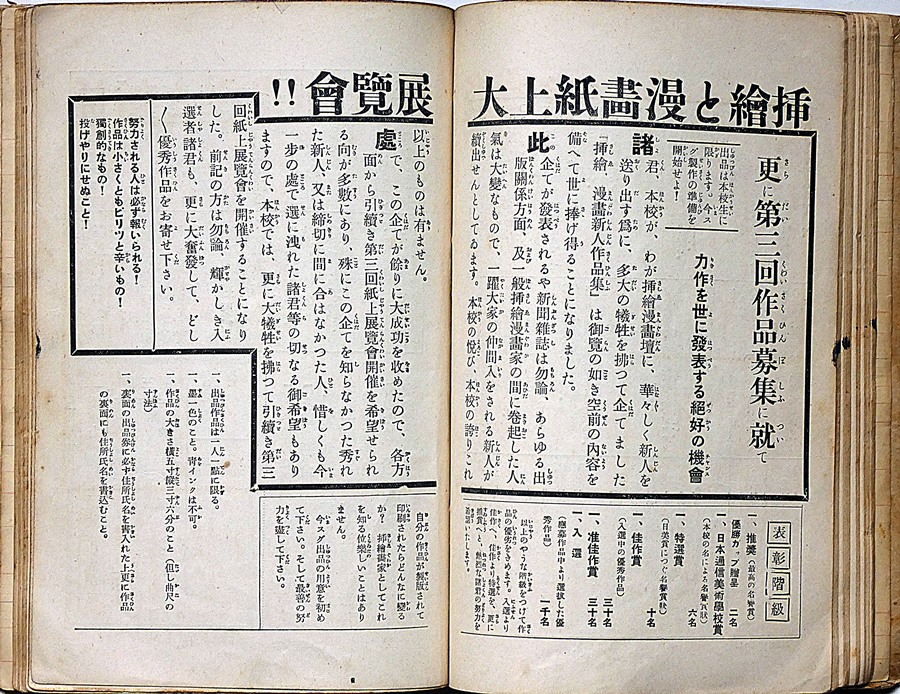 挿繪と漫畫紙上大
展覽會!!
更に第三回作品募集に就て
力作を世に發表する絕好の機會
出品は本校生に
限ります。今ス
グ製作の準備を
開始せよ!
諸君、本校が、わが挿繪漫畫壇に、華々しく新人を
送り出す爲に、多大の犠牲を拂つて企てました
『挿繪、漫畫新人作品集』は御覽の如き空前の內容を
備へて世に捧げ得ることになりました。
此の企てが發表されるや新聞雜誌は勿論、あらゆる出
版關係方面、及一般挿繪漫畫家の間に卷起した人
氣は大變なもので、一躍大家の仲間入をされる新人が
續出せんとしてゐます。本校の悅び、本校の誇りこれ
以上のものは有ません。
處で、この企てが餘りに大成功を收めたので、各方
面から引續き第三回紙上展覽會開催を希望せられ
る向が多數にあり、殊にこの企てを知らなかつた秀れ
た新人、又は締切に間に合はなかつた人、惜しくも今
一步の處で選に洩れた諸君等の切なる御希望もあり
ますので、本校では、更に大犠牲を拂つて引續き第三
回紙上展覽會を開催することになり
ました。前記の方は勿論、輝かしき入
選者諸君も、更に大奮發して、どし
〱優秀作品をお寄せ下さい。
努力される人は必ず報いられる!
作品は小さくともピリツと辛いもの!
獨創的なもの!
投げやりにせぬこと!
表彰階級
一、推奬(最高の名譽賞)
優勝カップ贈呈 二名
一、日本通信美術學校賞
(本校の名による名譽賞狀) 六名
一、特選賞 十名
(日英賞につぐ名譽賞狀)
一、佳作賞 三十名
(入選中の優秀作品)
一、准佳作賞 三十名
一、入選 二千名
(應募作品中より選拔した優
秀作品)
以上のやうな階級をつけて作
品の優劣をきめます。入選より
佳作へ、佳作より特選を、更に
推賞へと、熱烈な諸君の努力を
追いたします。
自分の作品が製版されて
印刷されたらどんなに變る
か?挿繪畫家としてこれ
を知る位樂しいことはあり
ません。
今スグ出品の用意を初め
て下さい。そして最善の努
力を盡して下さい。
一、出品作品は一人一點に限る。
一、墨一色のこと。靑インクは不可。
一、作品の大きさ橫五寸縱三寸六分のこと(但し曲尺の
寸法)
一、裏面の出品劵に必ず住所氏名を書入れた上更に作品
の裏面にも住所氏名を書込むこと。